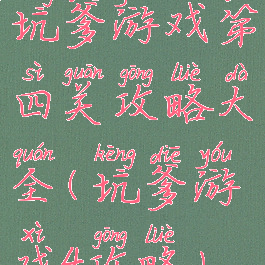 坑爹游戏第
sì guān gōng lüè dà
四关攻略大
quán kēng diē yóu
全(坑爹游
xì gōng lüè
戏4攻略)